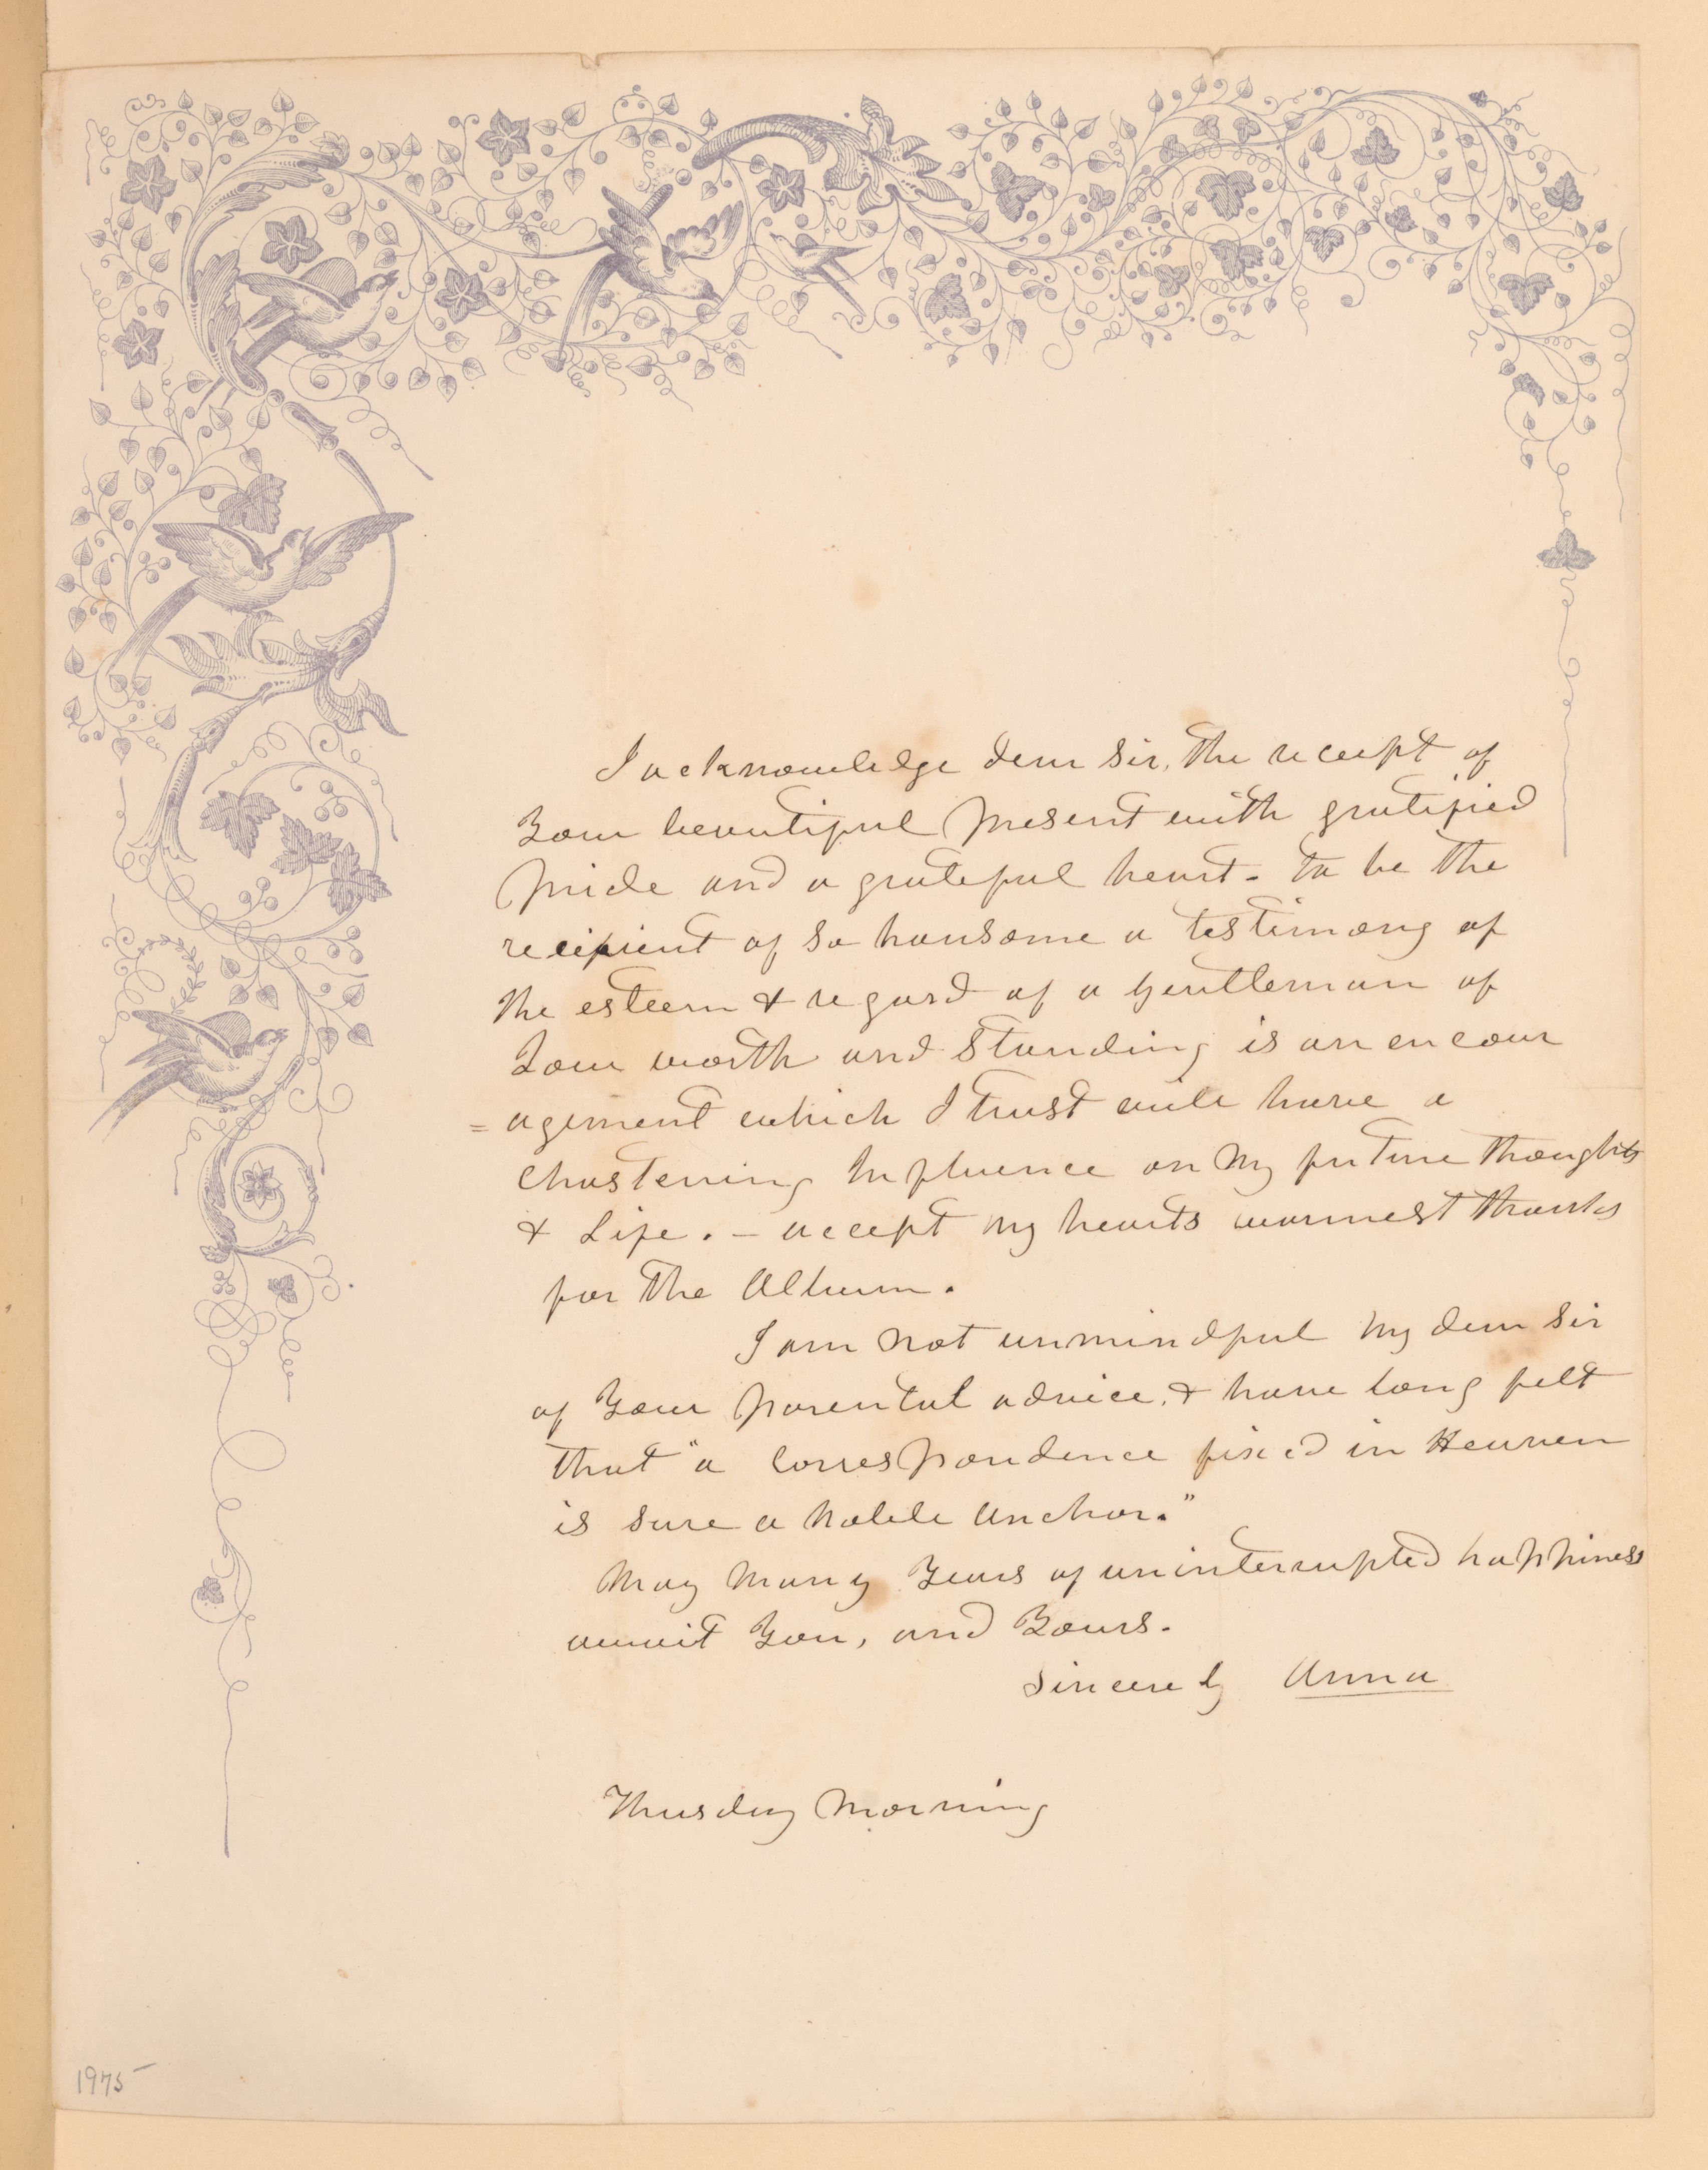 I acknowledge dear Sir, the receipt of
Your beautiful present with gratified
pride and a grateful heart - to be the
recipient of so hansome a testimony of
the esteem & regard of a gentleman of
Your worth and Standing is an encour
= agement which I trust will have a
chastening influence on my future thoughts
& Life . - accept my hearts warmest thanks
for the Album .
I am not unmindful my dear Sir
of Your parental advice, & have long felt
that "a correspondence fixed in Heaven
is sure a noble anchor."
May many Years of uninterrupted happiness
await You, and Yours.
Sincerely Anna
Thusday Morning
1975